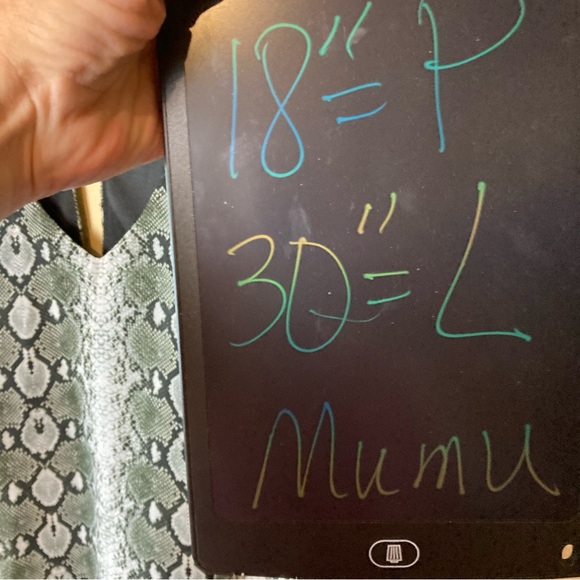 18" = P
30" = L
Mumu